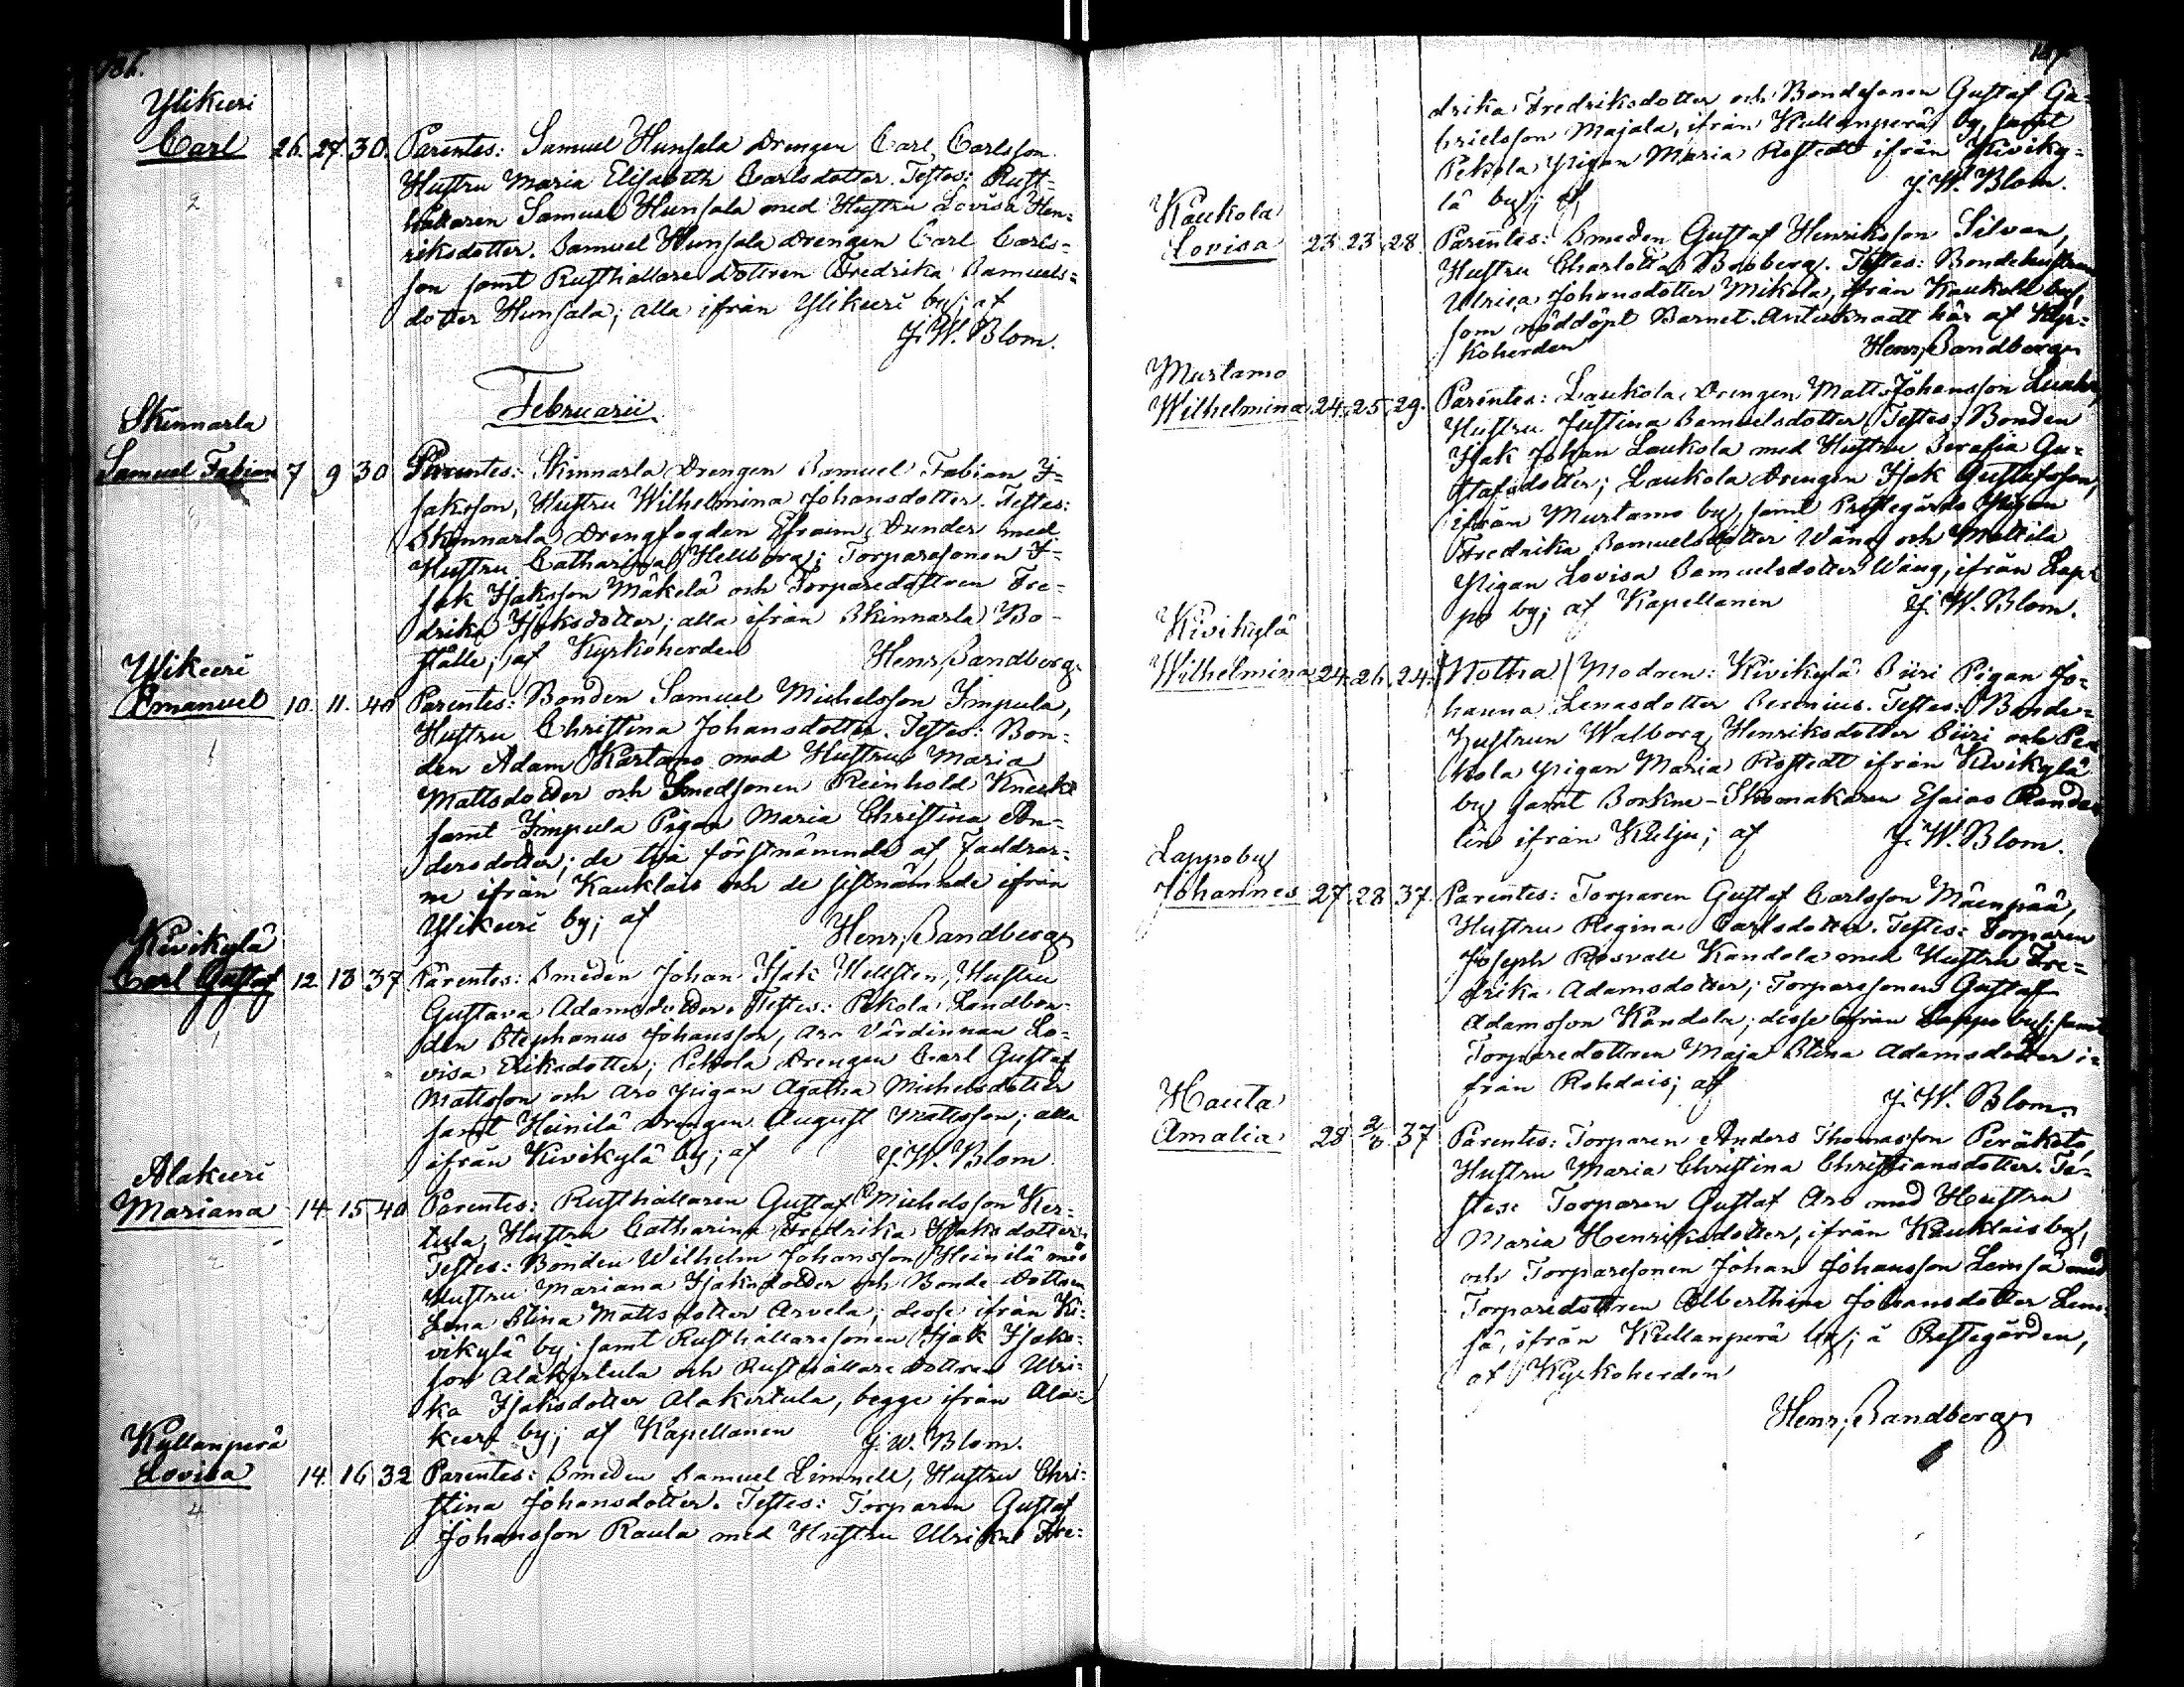 Ylikuri
Carl 26. 27. 30. Parentes: Samuel Hunsala Drengen Carl Carlsson
Hustru Maria Elisabeth Carlsdotter. Testes: Rust-
hållaren Samuel Hunsala med Hustru Lovisa Hen-
riksdotter. Samuel Hunsala Drengen Carl Carls-
son samt Rusthållare Dottren Fredrika Samuels-
dotter Hunsala; alla ifrån Ylikuri by; af
J. W. Blom.
Februarii
Skinnarla
Samuel Fabian 7 9 30 Parentes: Skinnarla Drengen Samuel Fabian I-
saksson, Hustru Wilhelmina Johansdotter. Testes:
Skinnarla Drengfogden Efraim Dunder med
Hustru Catharina Hellberg; Torparesonen I-
sak Isaksson Mäkelä och Torparedottren Fre-
drika Isaksdotter; alla ifrån Skinnarla Bo-
ställe; af Kyrkoherden Henr. Sandberg
Wikuri
Emanuel 10. 11. 40 Parentes: Bonden Samuel Michelsson Impula,
Hustru Christina Johansdotter. Testes: Bon-
den Adam Kartano med Hustru Maria
Mattsdotter och Smedsonen Reinhold
samt Impula Pigan Maria Christina An-
dersdotter; de två förstnämnde af Faddrar-
ne ifrån Kauklais och de sistnämnde ifrån
Ylikuri by; af Henr. Sandberg
Kivikylä
Carl Gustaf 12 13 37 Parentes: Smeden Johan Isak Hellsten, Hustru
Gustava Adamsdotter. Testes: Pekola Landbon-
den Stephanus Johansson, Aro Värdinnan Lo-
visa Eriksdotter; Pekola Drengen Carl Gustaf
Mattsson och Aro Pigan Agatha Michelsdotter
samt Heinilä Drengen August Mattsson; alla
ifrån Kivikylä by; af J. W. Blom
Alakuri
Mariana 14. 15 40 Parentes: Rusthållaren Gustaf Michelsson Ker-
tula, Hustru Catharina Fredrika Isaksdotter.
Testes: Bonden Wilhelm Johansson Heinilä med
Hustru Mariana Isaksdotter och Bonde Dottren
Lena Stina Mattsdotter Arvela; desse ifrån Ki-
vikylä by; samt Rusthållaresonen Isak Isaks-
son Alakertula och Rusthållare Dottren Ulri-
ka Isaksdotter Alakertula, begge ifrån Ala-
kuri by; af Kapellanen J. W. Blom.
Kyllanperä
Lovisa 14. 16 32 Parentes: Smeden Samuel Limnell, Hustru Chri-
stina Johansdotter. Testes: Torparen Gustaf
Johansson Raula med Hustru Ulrika Fre-
drika Fredriksdotter och Bondesonen Gustaf Ga-
brielsson Majala, ifrån Kullanperä by, samt
Pekola Pigan Maria Rostedt ifrån Kiviky-
lä by; af J. W. Blom.
Kaukola
Lovisa 23 23 28. Parentes: Smeden Gustaf Henriksson Silvan,
Hustru Charlotta Booberg. Testes: Bondehustrun
Ulrica Johansdotter Mikola, ifrån Kaukola by,
som nöddöpt Barnet. Antecknadt här af Kyr-
koherden Henr. Sandberg
Murtamo
Wilhelmina 24. 25. 29. Parentes: Laukola Drengen Matts Johansson
Hustru Justina Samuelsdotter. Testes: Bonden
Isak Johan Laukola med Hustru Serafia Gu-
stafsdotter; Laukola Drengen Isak Gustafsson,
ifrån Murtamo by, samt Prestegårds Pigan
Fredrika Samuelsdotter Wäng och Mattila
Pigan Lovisa Samuelsdotter Wäng, ifrån Lap-
po by; af Kapellanen J. W. Blom.
Kivikylä
Wilhelmina 24. 26. 24. (Notha) Modren: Kivikylä Siiri Pigan Jo-
hanna Lenasdotter Serenius. Testes: Bonde-
Hustrun Walborg Henriksdotter Siiri och Pe-
kola Pigan Maria Rostedt ifrån Kivikylä
by samt Sockne-Skomakaren Esaias
lin ifrån Kulju; af J. W. Blom.
Lappo by
Johannes 27. 28 37. Parentes: Torparen Gustaf Carlsson Mäenpää,
Hustru Regina Carlsdotter. Testes: Torparen
Joseph Rosvall Kandola med Hustru Fre-
drika Adamsdotter; Torparesonen Gustaf
Adamsson Kandola; desse ifrån Lappo by; samt
Torparedottren Maja Stina Adamsdotter i-
från Rohdais; af
J. W. Blom.
Hauta
Amalia 28 2/3. 37 Parentes: Torparen Anders Thomasson Peräkoto,
Hustru Maria Christina Christiansdotter. Te-
stes: Torparen Gustaf Aro med Hustru
Maria Henriksdotter, ifrån Kauklais by,
och Torparesonen Johan Johansson Lemsä med
Torparedottren Alberthina Johansdotter Lem-
sä, ifrån Kullanperä by; å Prestegården,
af Kyrkoherden
Henr. Sandberg